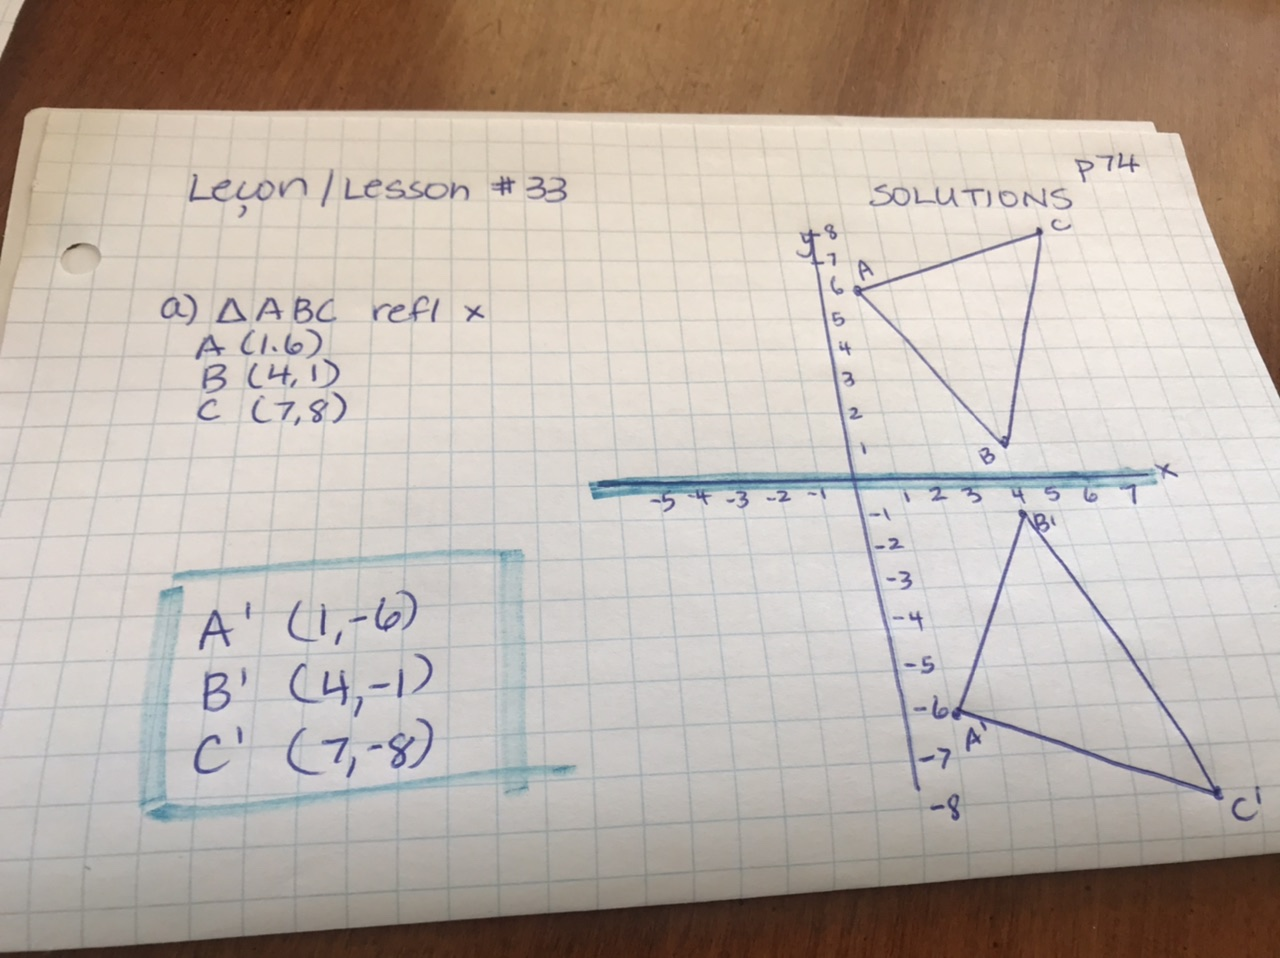 p74
Leçon / Lesson # 33
SOLUTIONS
a) △ ABC refl x
A (1.6)
B (4,1)
C (7,8)
A' (1,-6)
B' (4,-1)
C' (7,-8)
y
8
7
6
5
4
3
2
1
A
C
B
x
-5 -4 -3 -2 -1 1 2 3 4 5 6 7
-1
-2
-3
-4
-5
-6
-7
-8
B'
A'
C'